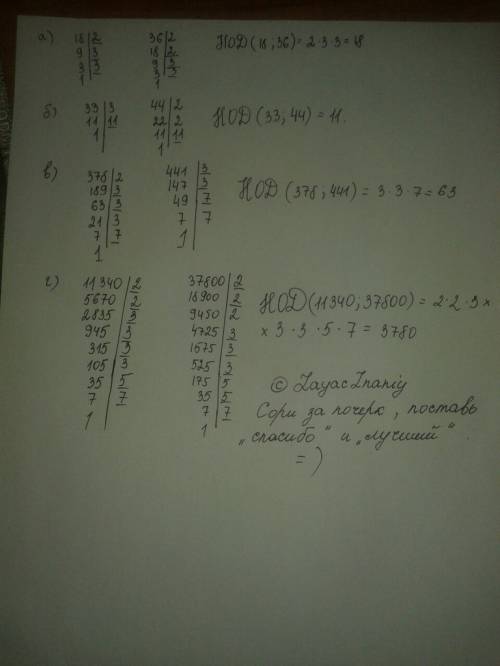 а) 18 | 2 36 | 2 НОД (18; 36) = 2·3·3 = 18
9 | 3 18 | 2
3 | 3 9 | 3
1 3 | 3
1
б) 33 | 3 44 | 2 НОД (33; 44) = 11.
11 | 11 22 | 2
1 11 | 11
1
в) 378 | 2 441 | 3 НОД (378; 441) = 3·3·7 = 63
189 | 3 147 | 3
63 | 3 49 | 7
21 | 3 7 | 7
7 | 7 1
1
г) 11340 | 2 37800 | 2 НОД (11340; 37800) = 2·2·3 ×
5670 | 2 18900 | 2 × 3·3·5·7 = 3780
2835 | 3 9450 | 2
945 | 3 4725 | 3
315 | 3 1575 | 3
105 | 3 525 | 3
35 | 5 175 | 5
7 | 7 35 | 5
1 7 | 7
1
© ZayacInaniy
Сори за почерк, поставь
„спасибо“ и „лучший“.
=)